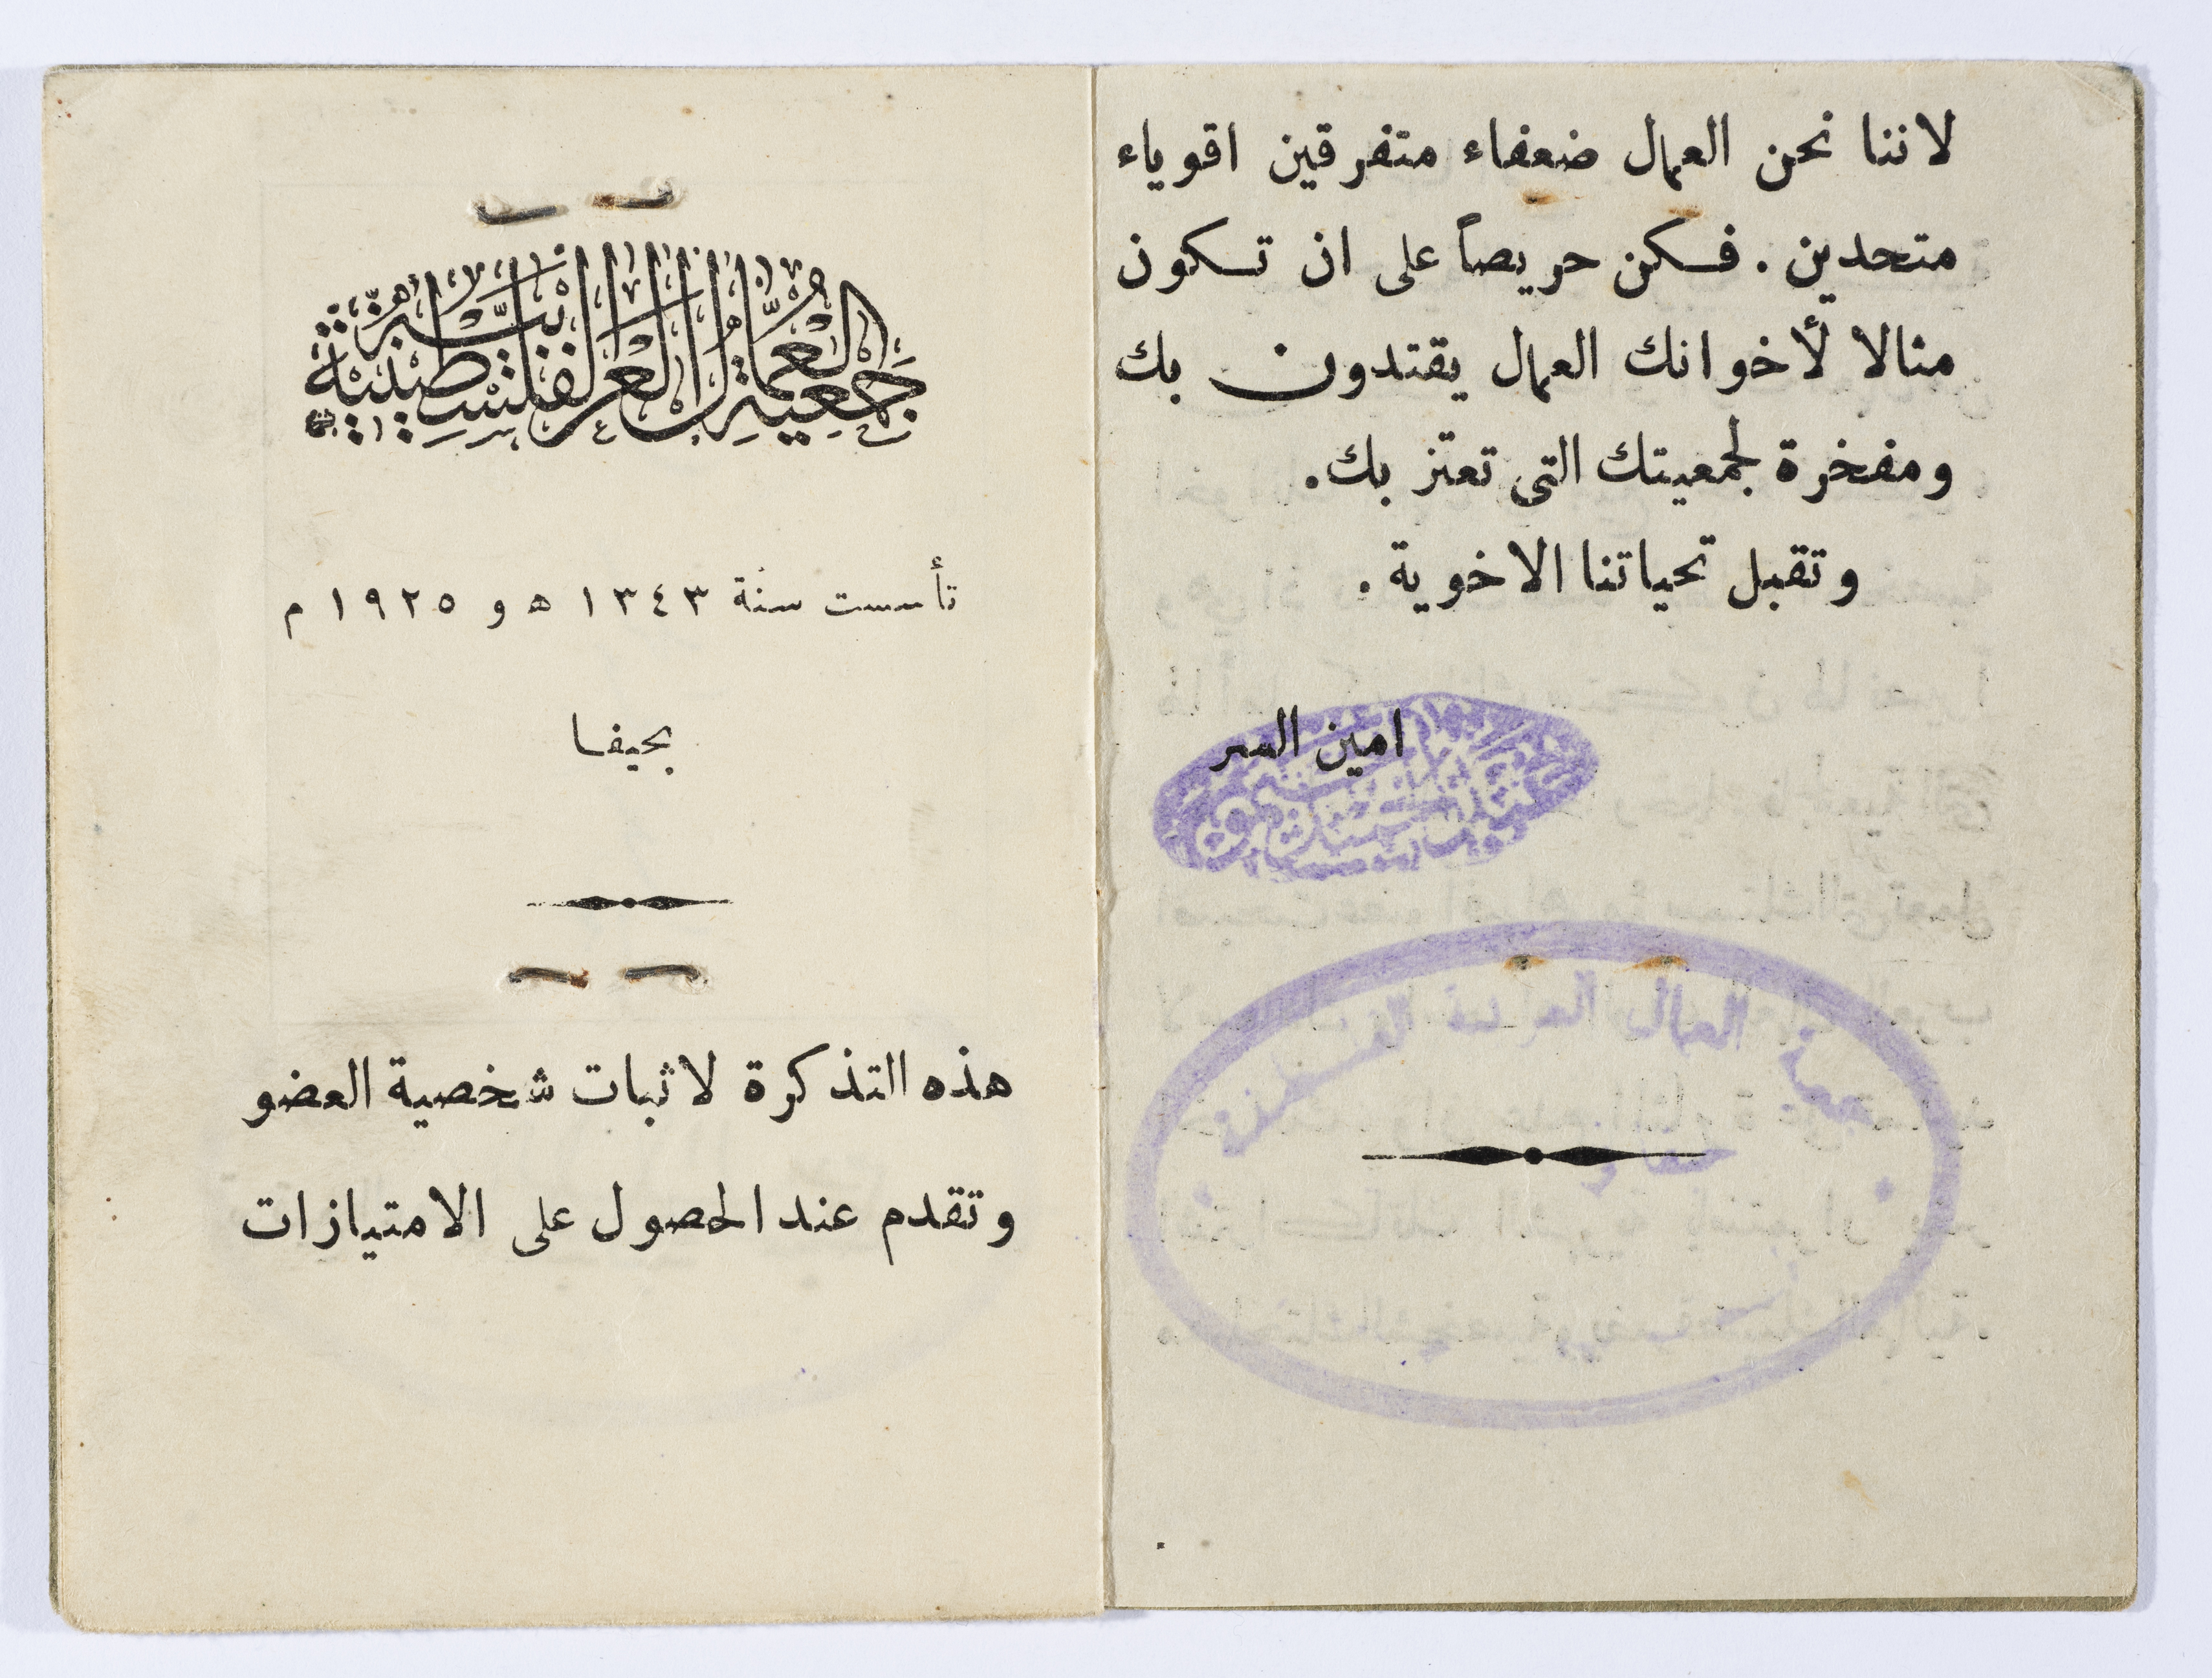 لاننا نحن العمال ضعفاء متفرقين اقوياء
متحدين. فكن حريصاً على ان تكون
مثالا لأخوانك العمال يقتدون بك
ومفخرة لجمعيتك التى تعتز بك.
وتقبل تحياتنا الاخوية.
امين السر
جمعية العمال العربية الفلسطينية
بحيفا
جَمعيةُ العُمَّال العَربيَّة الفلسطينية
تأسست سنة ١٣٤٣ ه و ١٩٢٥ م
بحيفا
هذه التذكرة لاثبات شخصية العضو
وتقدم عند الحصول على الامتيازات